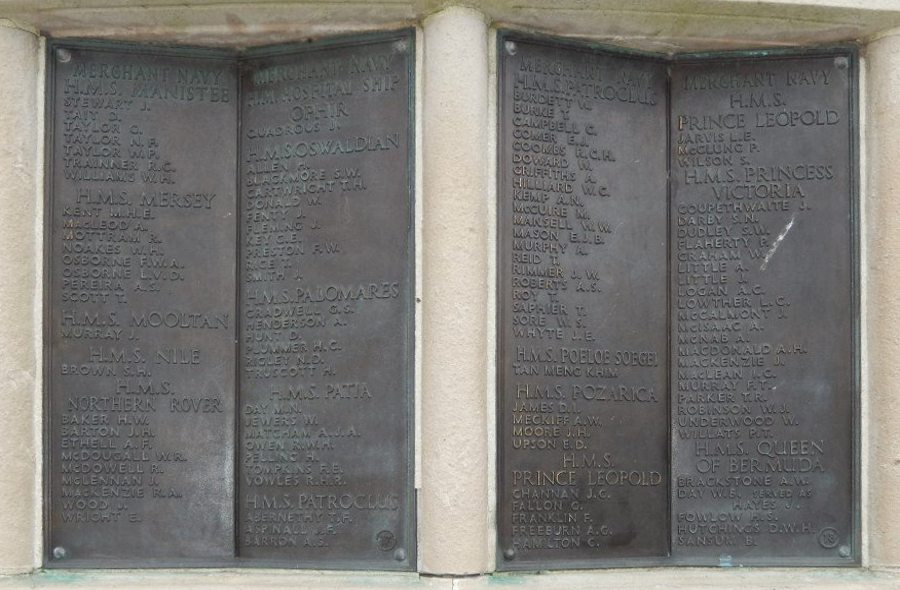 MERCHANT NAVY
H.M.S. MANISTEE
STEWART J.
TAIT D.
TAYLOR G.
TAYLOR N.F.
TAYLOR W.P.
TRAINNER R.G.
WILLIAMS W.H.
H.M.S. MERSEY
KENT M.H.E.
MACLEOD A.
MOTTURAM R.
NOAKES W.H.
OSBORNE F.W.A.
OSBORNE L.V.D.
PEREIRA A.S.
SCOTT T.
H.M.S. MOOLTAN
MURRAY J.
H.M.S. NILE
BROWN S.H.
H.M.S.
NORTHERN ROVER
BAKER H.W.
BARTON J.H.
ETHELL A.F.
McDOUGALL W.R.
McDOWELL R.
McLENNAN J.
MACKENZIE R.A.
WOOD J.
WRIGHT E.
MERCHANT NAVY
H.M. HOSPITAL SHIP
OFHIR
QUADROUS J.
H.M.S OSWALDIAN
ALLEN H.
BLACKMORE S.W.
CARTWRIGHT T.H.
DONALD W.
FENTY J.
FLEMING J.
KEY C.E.
PRESTON F.W.
RICE T.
SMITH J.
H.M.S. PALOMARES
CRADWELL G.S.
HENDERSON A.
HUNT D.
PLUMMER H.C.
RIGLEY N.D.
TRUSCOTT H.
H.M.S. PATIA
DAY M.N.
JEWERS W.
MATCHAM A.J.A.
OWEN R.W.H.
PELLING H.
TOMPKINS F.E.
VOWLES R.H.R.
H.M.S. PATROCLUS
ABERNETHY T.F.
ASPINALL J.F.
BARRON A.S.
MERCHANT NAVY
H.M.S. PATROCLUS
BURDETT W.
BURKE T.
CAMPBELL C.
COMER E.J.
COOMBS R.C.H.
DOWARD W.
GRIFFITHS A.
HILLIARD W.G.
KEMP A.N.
McGUIRE M.
MANSELL W.W.
MASON E.J.B.
MURPHY A.
REID T.
RIMMER J.W.
ROBERTS A.S.
ROY T.
SAPHIER T.
SORE W.S.
WHYTE J.E.
H.M.S. POELOE SOEGEI
TAN MENG KHIM
H.M.S. POZARICA
JAMES D.I.
MECKIFF A.W.
MOORE J.H.
UPSON E.D.
H.M.S.
PRINCE LEOPOLD
CHANNAN J.G.
FALLON G.
FRANKLIN F.
FREEBURN A.G.
HAMILTON G.
MERCHANT NAVY
H.M.S.
PRINCE LEOPOLD
JARVIS L.E.
McCLUNG P.
WILSON S.
H.M.S. PRINCESS
VICTORIA
COUPETHWAITE J.
DARBY S.N.
DUDLEY S.W.
FLAHERTY P.
GRAHAM W.
LITTLE A.
LITTLE A.
LOGAN A.C.
LOWTHER L.G.
McCALMONT J.
McISAAC A.
McNAB A.
MACDONALD A.H.
MACKENZIE J.
MacLEAN H.C.
MURRAY F.T.
PARKER T.R.
ROBINSON W.J.
UNDERWOOD W.
WILLATS P.T.
H.M.S. QUEEN
OF BERMUDA
BRACKSTONE A.W.
DAY W.S. SERVED AS
HAYES J.
FOWLOW
HUTCHINGS D.W.H.
SANSUM B.